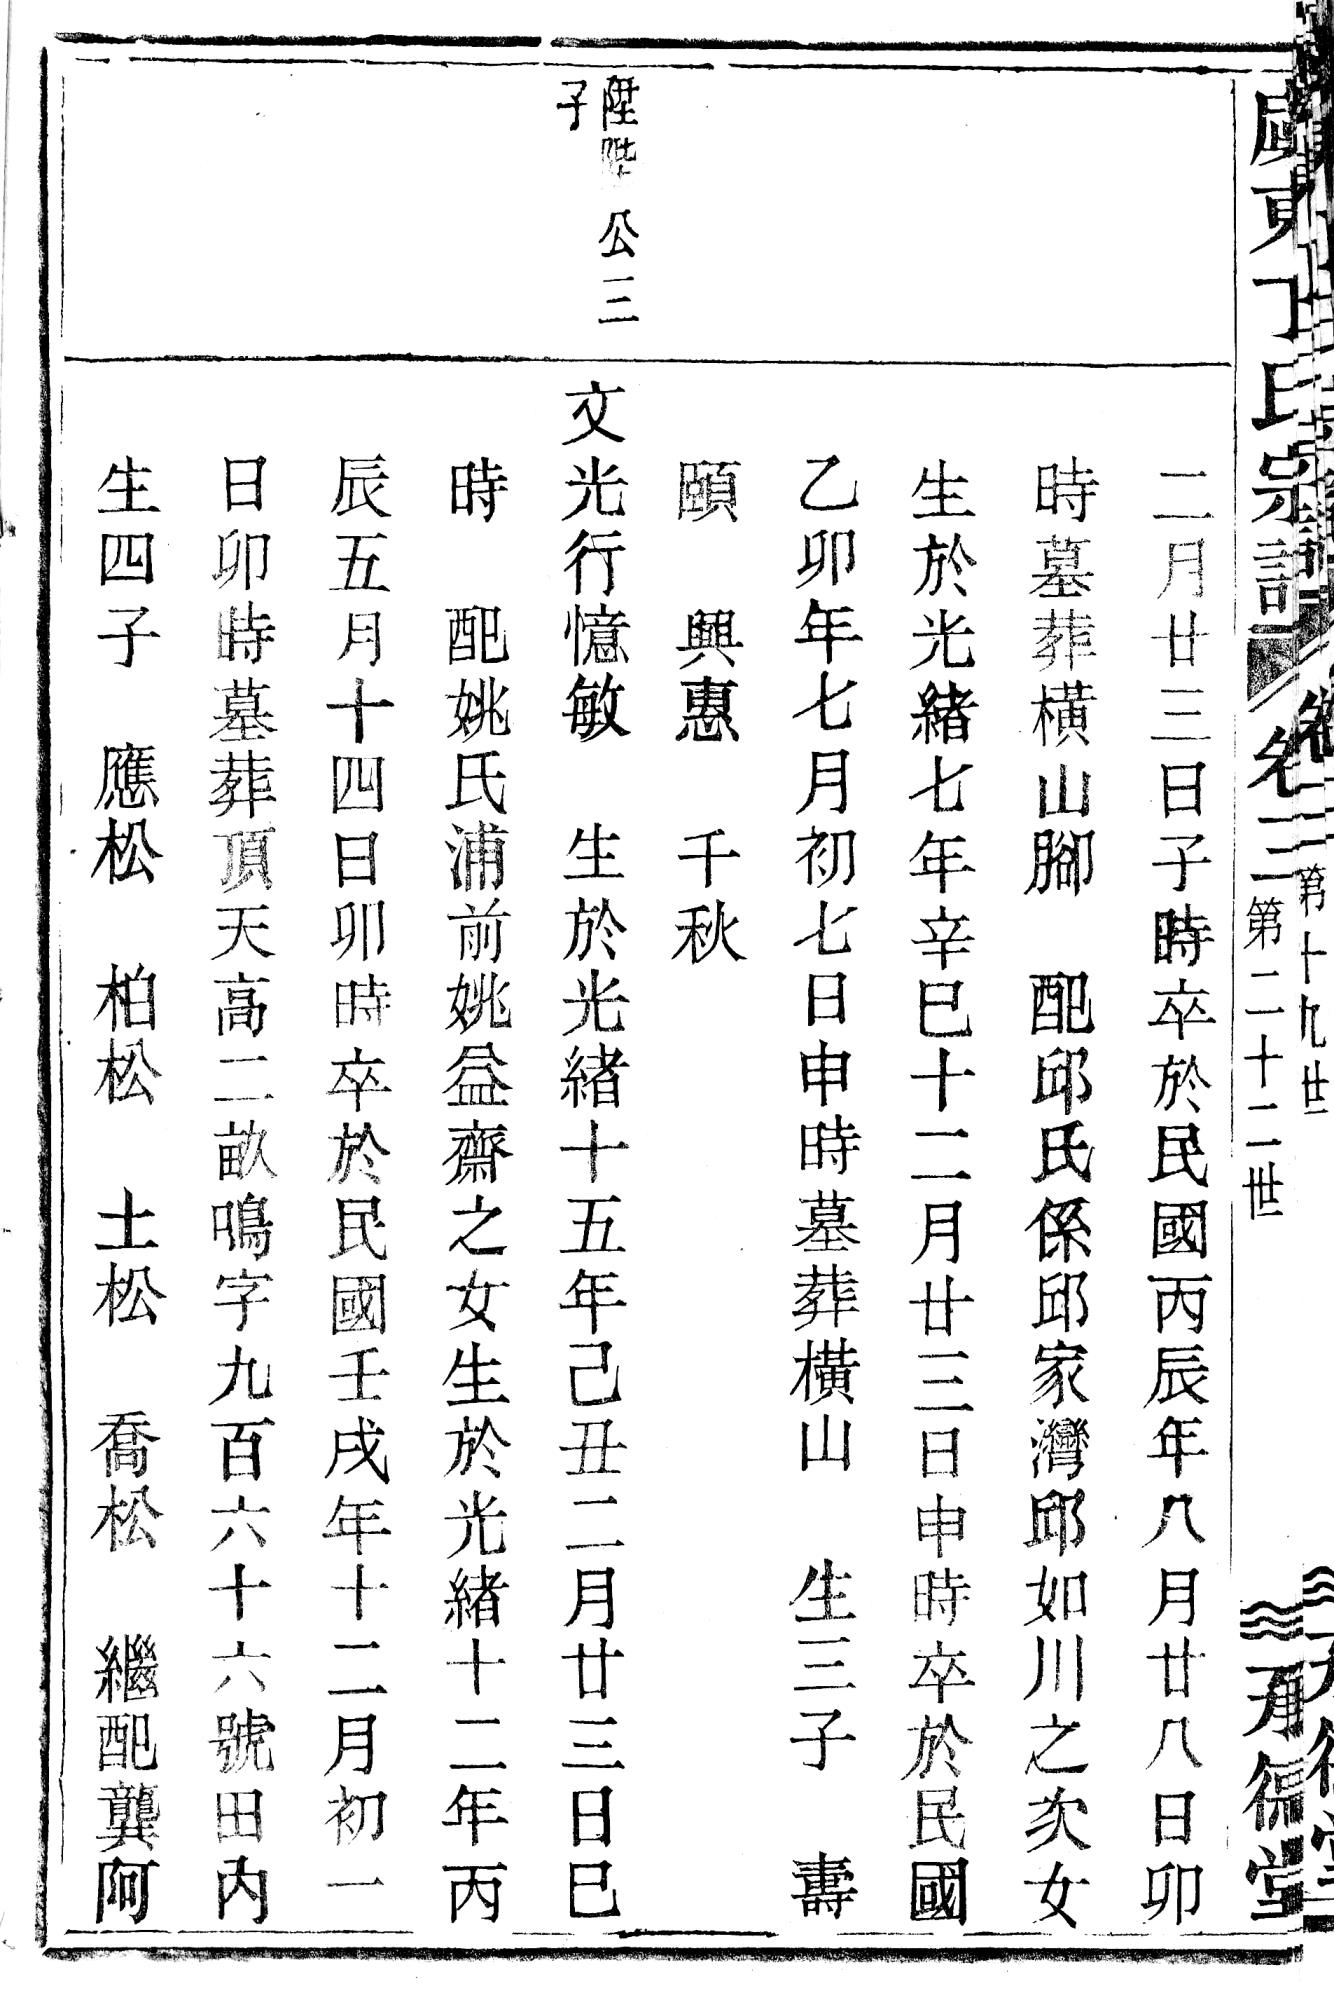 東丁氏宗譜
卷三
第二十二世
承德堂
第十九世
陞陛公三
子
二月廿三日子時卒於民國丙辰年八月廿八日卯
時墓葬橫山腳 配邱氏係邱家灣邱如川之次女
生於光緒七年辛巳十二月廿三日申時卒於民國
乙卯年七月初七日申時墓葬橫山 生三子 壽
頤 興惠 千秋
文光行憶敏 生於光緒十五年己丑二月廿三日巳
時 配姚氏浦前姚益齋之女生於光緒十二年丙
辰五月十四日卯時卒於民國壬戌年十二月初一
日卯時墓葬頂天高二畝鳴字九百六十六號田內
生四子 應松 柏松 土松 喬松 繼配龔阿